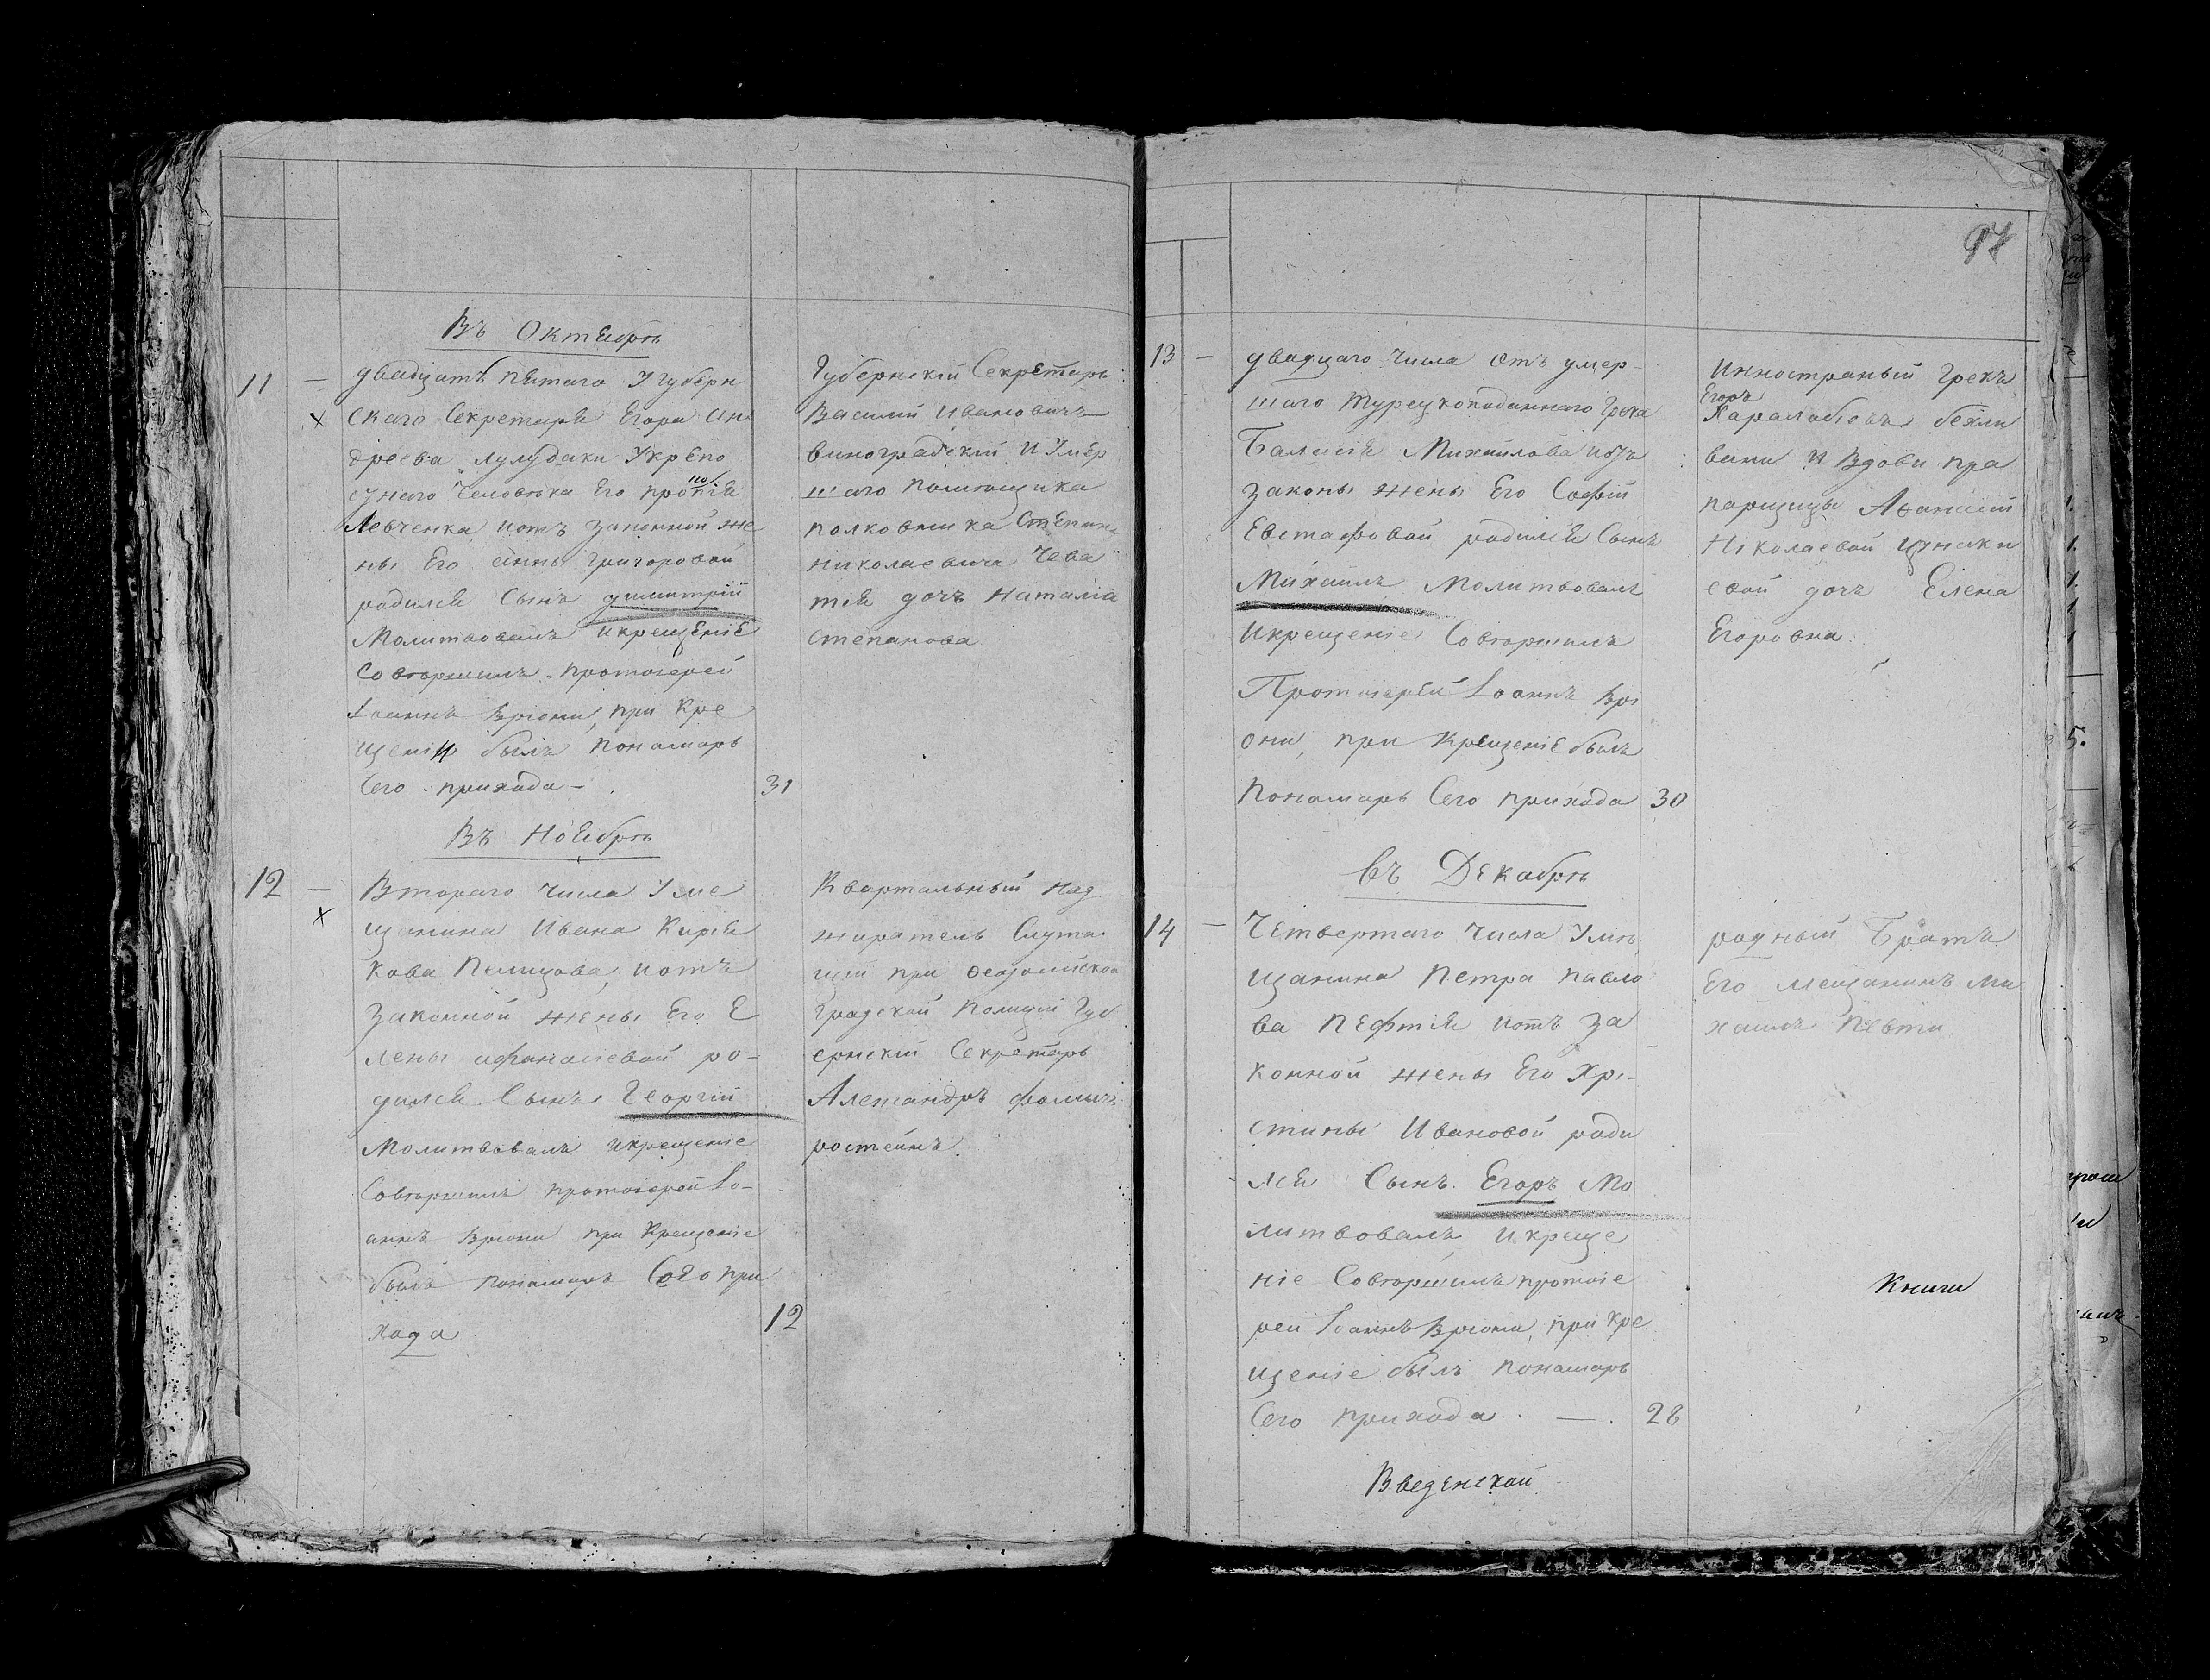 Въ Октябрѣ
11 — двадцать пятаго У губерн
скаго Секретаря Егора Ан
дреева Лулудаки Укрепо
снаго Человѣка Его
Левченка иотъ законной же
ны Его Анны Григоровой
родился Сынъ Димитрій
Молитвовалъ икрещеніе
Совершилъ протоіерей
Іоаннъ Вріони, при Кре
щеніи былъ пономарь
Сего прихода — 31
Губернскій Секретарь
Василій Ивановичъ
виноградскій и Умер
шаго помещика
полковника Степана
николаевича Чева
тія дочь Наталіа
Степанова
Въ Ноябрѣ
12 — Втораго числа У ме
щанина Ивана
Кова иотъ
Законной жены Его Е
лены афанасіевой ро-
дился Сынъ Георгій
Молитвовалъ икрещеніе
Совершилъ протоіерей Іо-
аннъ Вріони при Крещеніе
былъ пономарь Сего при
хода 12
Квартальный Над
жиратель Служа
щій при Ѳеодосійской
Градской Полиціи Губ
ернскій Секретарь
Александръ
ростейнъ.
97
13 — двадцаго числа отъ умер-
шаго Турецкоподаннаго Грека
Михайлова иотъ
законы жены Его Софіи
Евстафовой родился Сынъ
Михаилъ Молитвовалъ
Икрещеніе Совершилъ
Протоіерей Іоаннъ Врі
они, при Крещеніе былъ
Пономарь Сего прихода 30
Инностраный Грекъ
Егоръ
Харалабіевъ
вани И Вдови пра
порщицы Афанасіи
Николаевой
евой дочь Елена
Егоровна.
Въ Декабрѣ
14 — Четвертаго Числа У мѣ
щанина Петра павло
ва Пефтія иотъ за
конной жены Его Хрі-
стины Ивановой роди
лся Сынъ Егоръ Мо
литвовалъ, икреще
ніе Совершилъ протоіе
реи Іоаннъ Вріони, при Кре
щеніе былъ пономарь
Сего прихода. — 28
родный Братъ
Его мещанинъ Ми
хаилъ Певти
Книги
Введенской